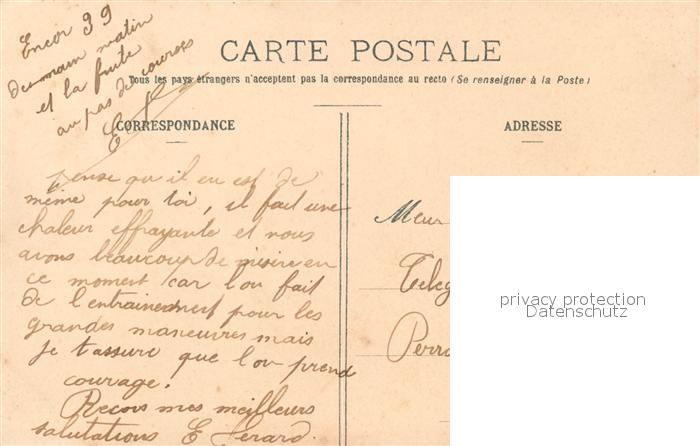 Encor 39
demain matin
et la fuite
au pas de courses
E
CARTE POSTALE
Tous les pays étrangers n'acceptent pas la correspondance au recto (Se renseigner à la Poste)
CORRESPONDANCE
pense qu il en est de
même pour toi, il fait une
chaleur effrayante et nous
avons beaucoup de misère en
ce moment car l'on fait
de l'entrainement pour les
grandes maneuvres mais
je t'assure que l'on prend
courage.
Recois mes meilleurs
salutations E Gerard.
ADRESSE
Meur
Teleg
Perro
privacy protection
Datenschutz